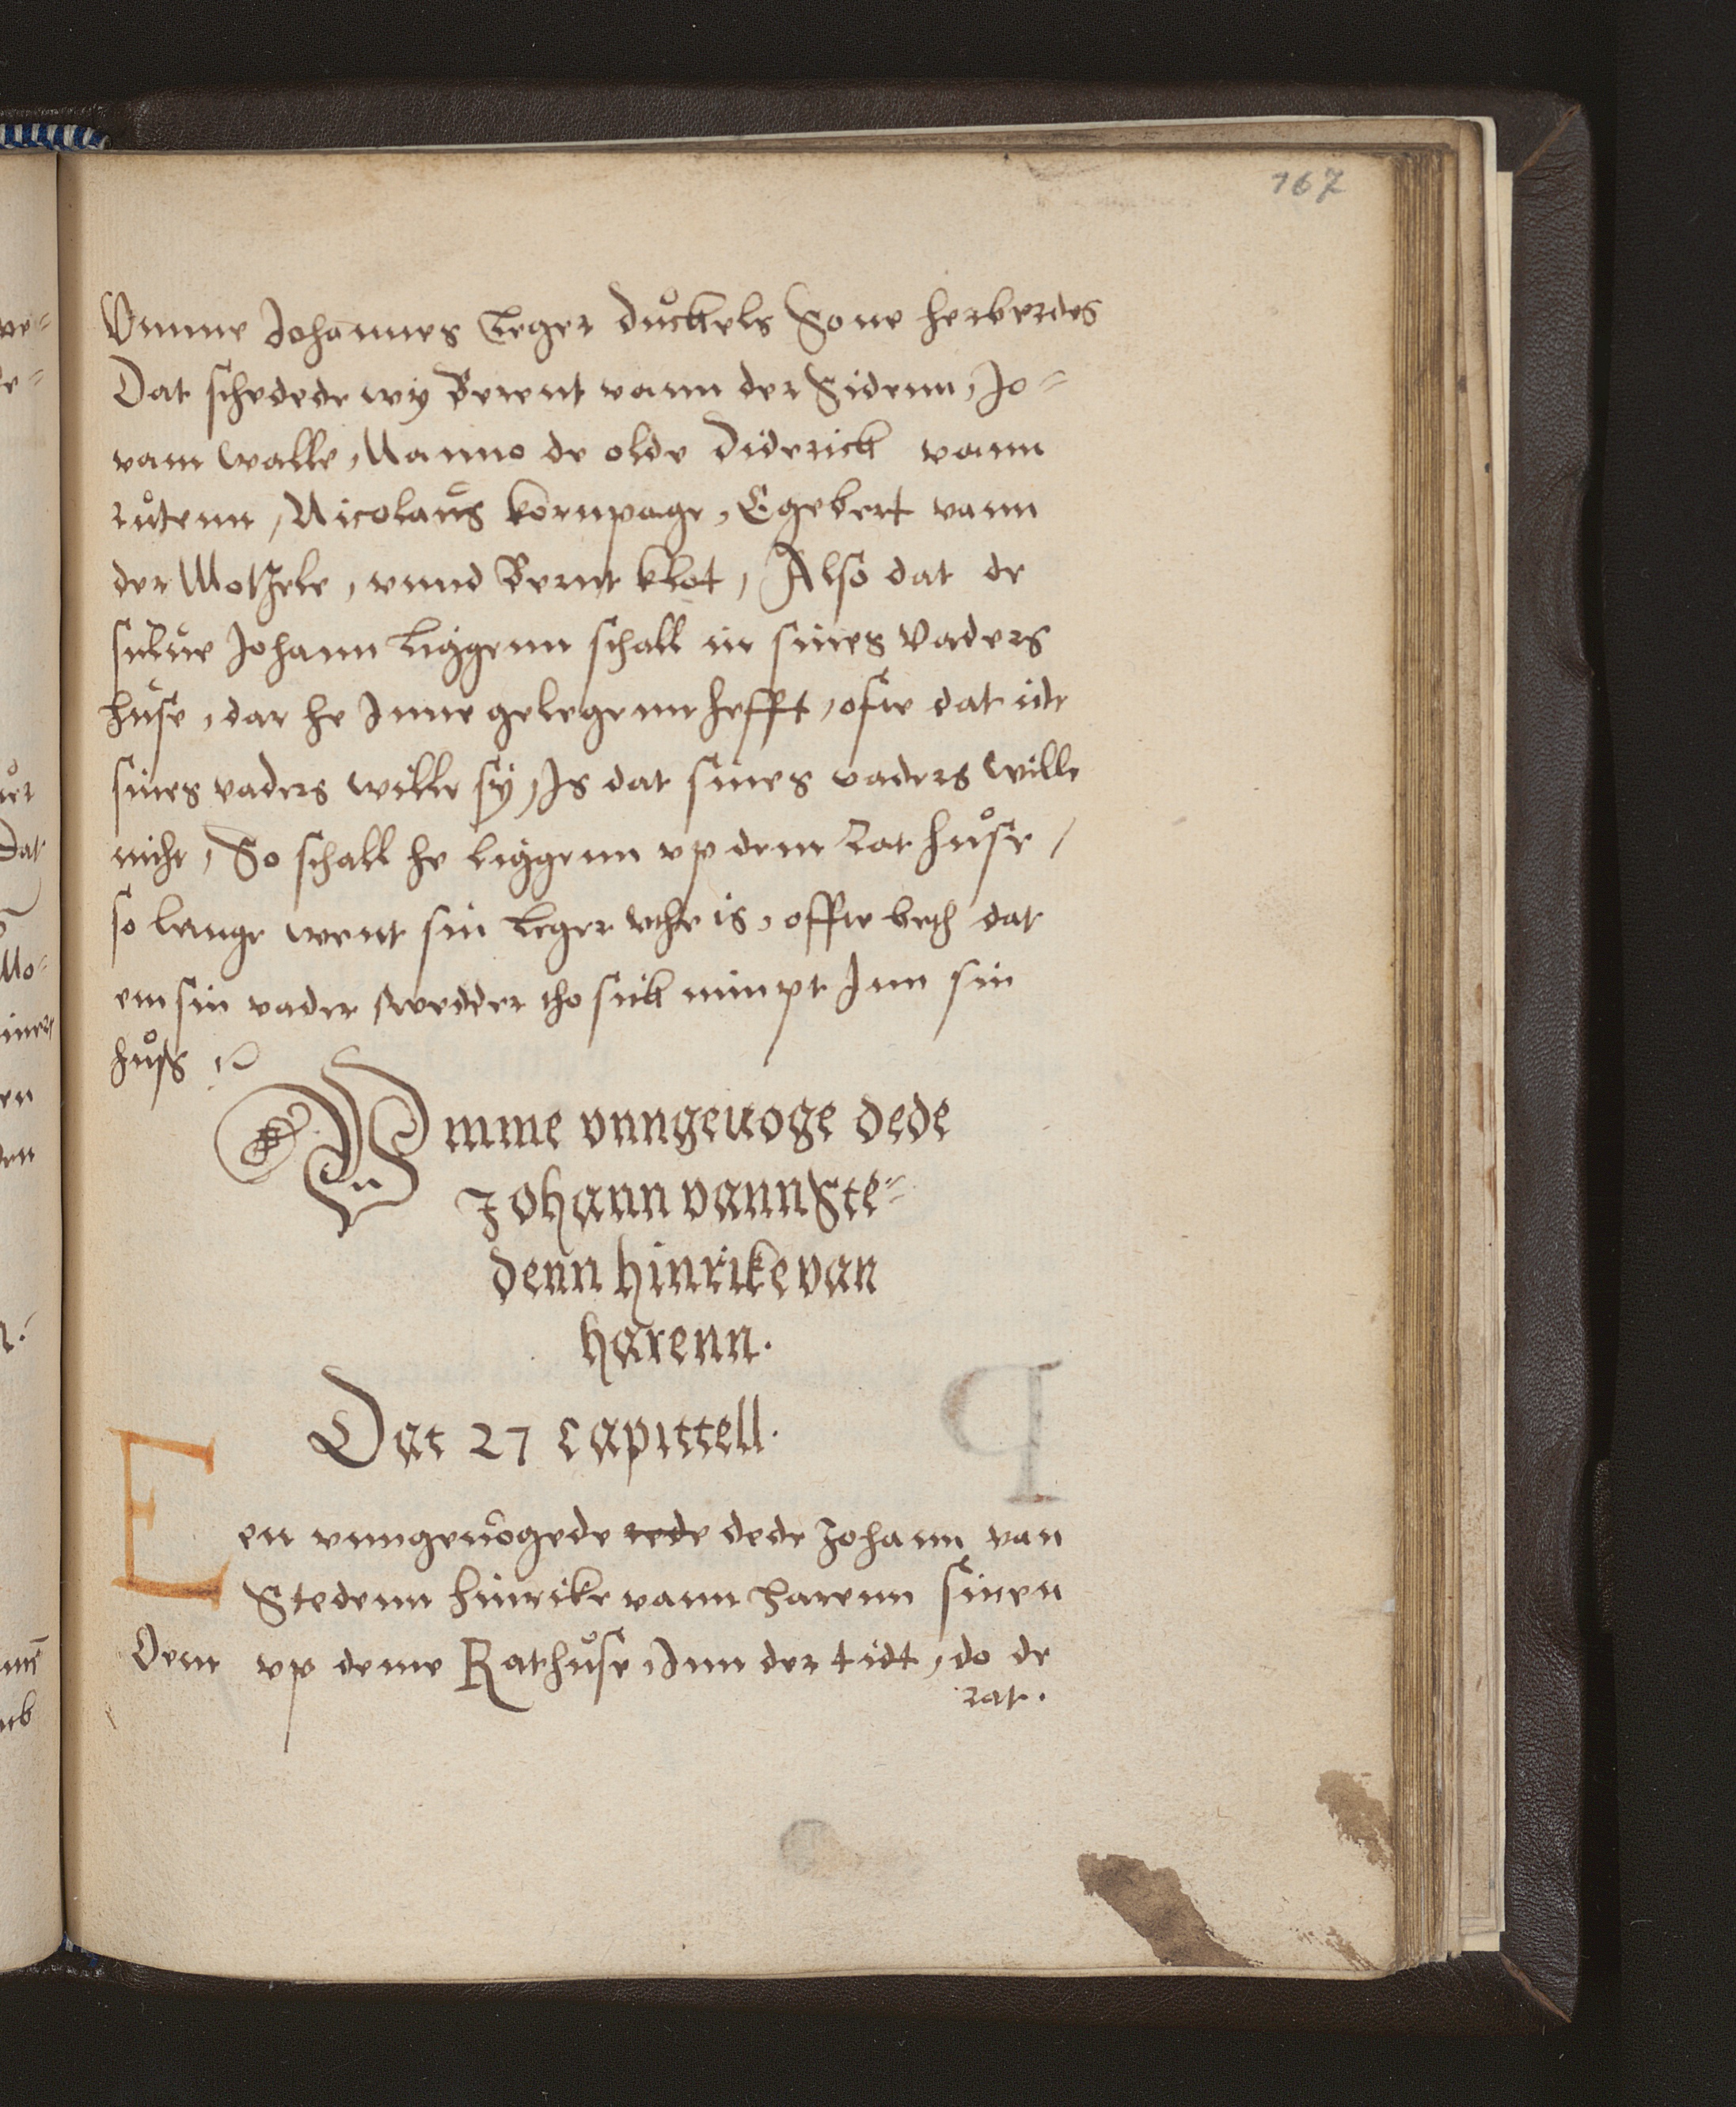 167
Vmme Johannes Leger Důckels Sone herberdes
Dat schedede wy Berent vann der Sidenn, Jo-
vam Walle, Nanno de olde Diderick vann
růtenn, Nicolaůs kornpage, Egebert vann
der Motzele, vnnd Bernt klot, Also dat de
sulue Johann liggenn schall in sines Vaders
huse, dar he Inne gelegenn hefft, ofte dat idt
sines vaders wille sy, Is dat sines vaders wille
nicht, So schall he liggenn vp dem Rat huͦse,
so lange went sin Leger vthe is, offte beth dat
em sin vader wedder tho sick nimpt Inn sin
huͦß
Vmme vnngeuoge dede
Johann vann Ste-
denn hinrike van
harenn.
Dat 27 Capittell.
Een vnngeuogede rede dede Johann van
Stedenn hinrike vann harenn sinen
Oem vp deme Rathuͦse, Inn der tidt, do de
rat.